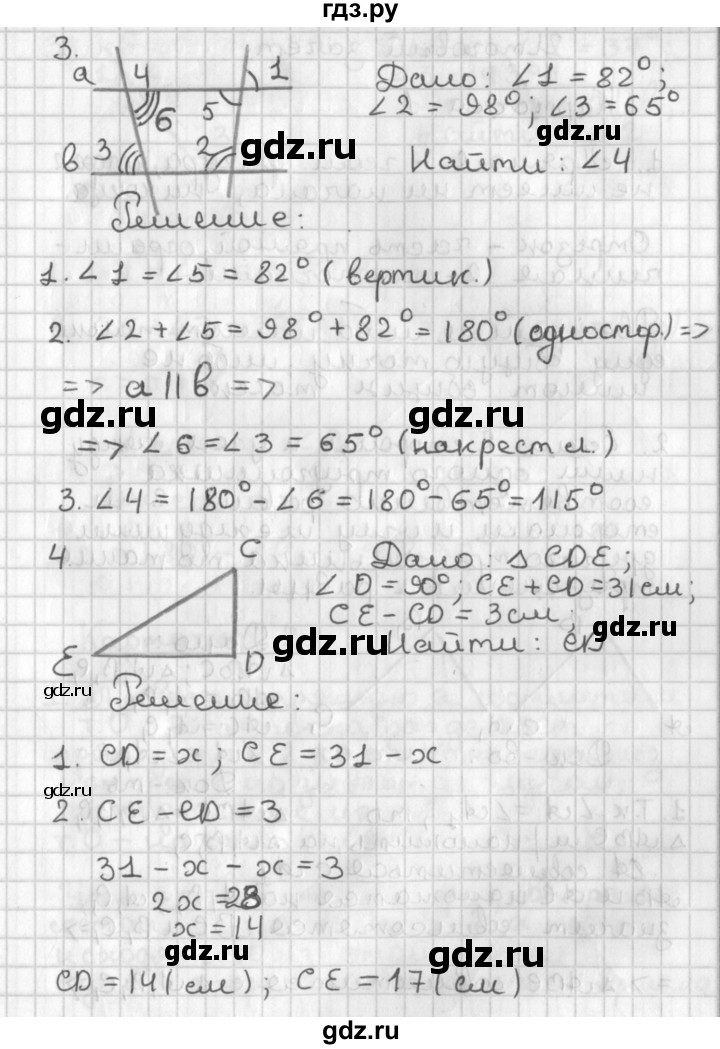 гдз.ру
3.
a 4 1
6 5
в 3 2
Дано: ∠1 = 82°;
∠2 = 98°; ∠3 = 65°
gdz.ru gdz.ru
Найти: ∠4
Решение:
gdz.ru gdz.ru
1. ∠1 = ∠5 = 82° (вертик.)
2. ∠2 + ∠5 = 98° + 82° = 180° (одностор.) =>
=> a || в =>
gdz.ru gdz.ru
=> ∠6 = ∠3 = 65° (накрест л.)
3. ∠4 = 180° - ∠6 = 180° - 65° = 115°
gdz.ru gdz.ru
4.
C
E D
Дано: ▵ CDE;
∠D = 90°; CE + CD = 31 см;
CE - CD = 3 см;
gdz.ru
Найти: CD
gdz.ru
Решение:
gdz.ru
1. CD = x; CE = 31 - x
gdz.ru
2. CE - CD = 3
31 - x - x = 3
2x = 28
x = 14
gdz.ru gdz.ru
CD = 14 (см); CE = 17 (см)
gdz.ru
гдз.ру